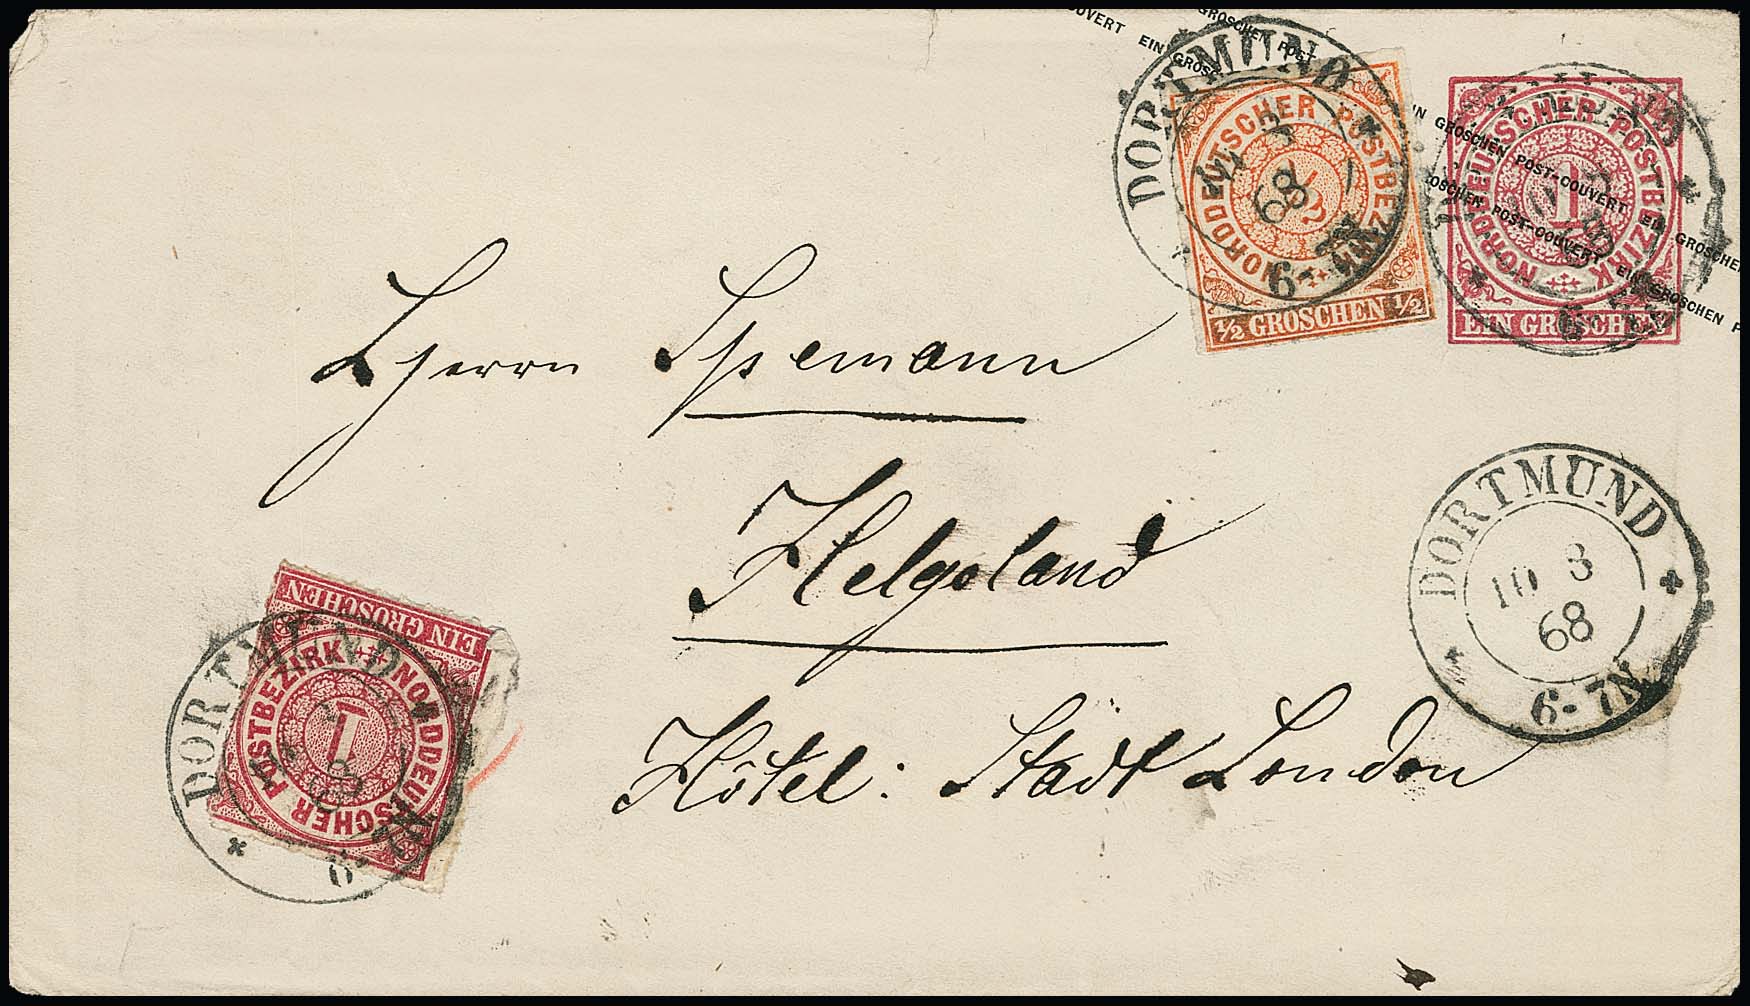 OUVERT EIN GROSC
GROSCHEN POST
DORTMUND
3
68
6-7N
NORDDEUTSCHER POSTBEZIRK
½
½ GROSCHEN ½
IN GROSCHEN POST-COUVERT EIN GROSCHEN
OSCHEN POST-COUVERT EIN GROSCHEN P
NORDDEUTSCHER POSTBEZIRK
1
EIN GROSCHEN
Herrn Spemann
Helgoland
Hôtel: Stadt London
DORTMUND
10 8
68
6-7N
EIN GROSCHEN
NORDDEUTSCHER POSTBEZIRK
1
DORTMUND